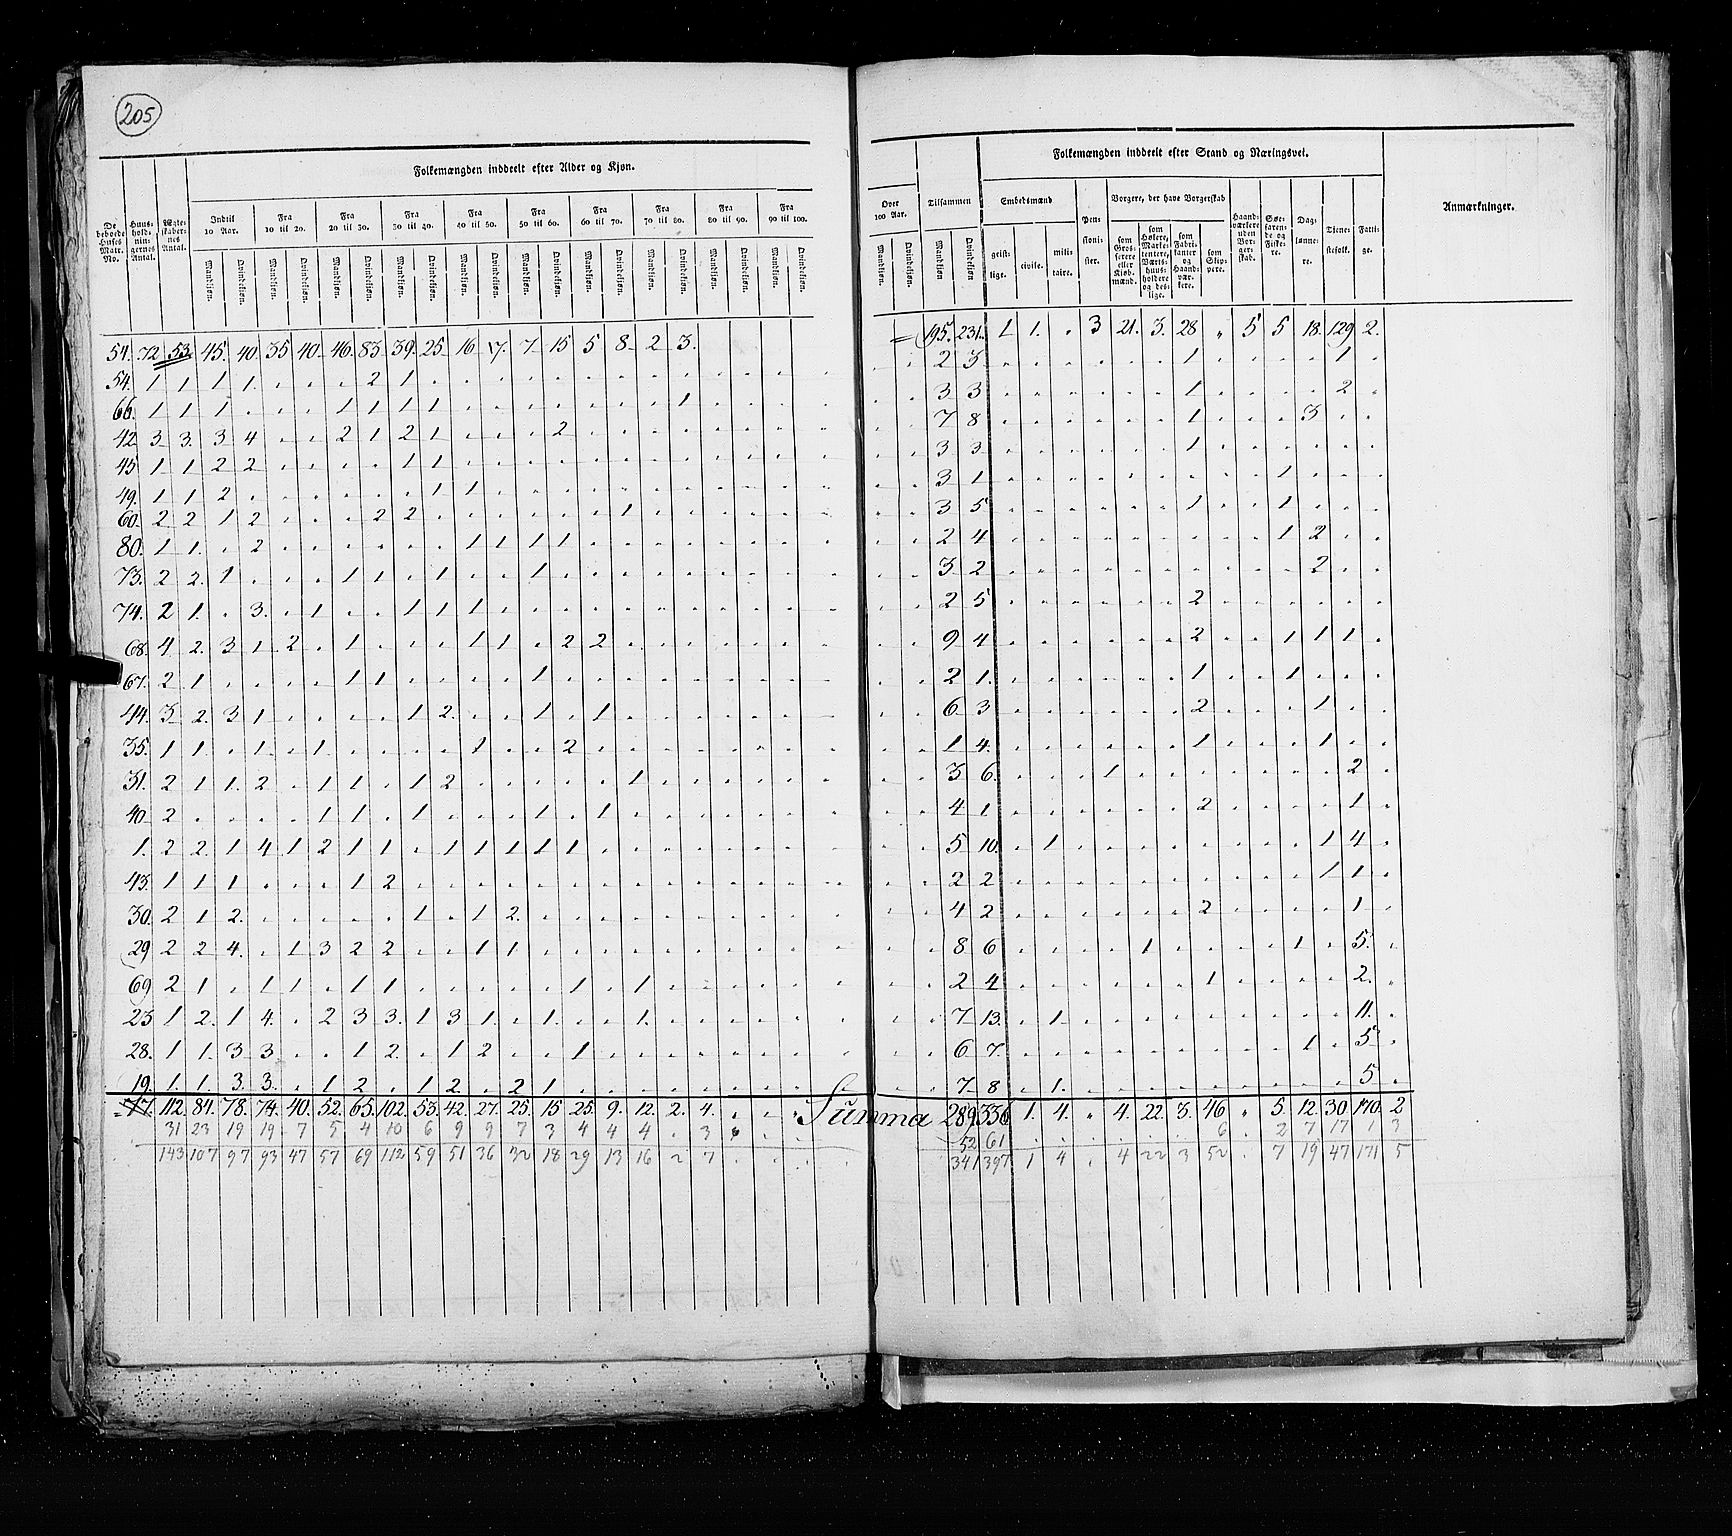 205
Folkemængden inddeelt efter Alder og Kjøn.
Folkemængden inddeelt efter Stand og Næringsvei.
De beboede Huses Matr. No.
Huus-holdnin-gernes Antal.
Ægte-skaber-nes Antal.
Indtil 10 Aar.
Fra 10 til 20.
Fra 20 til 30.
Fra 30 til 40.
Fra 40 til 50.
Fra 50 til 60.
Fra 60 til 70.
Fra 70 til 80.
Fra 80 til 90.
Fra 90 til 100.
Over 100 Aar.
Tilsammen
Embedsmænd
Pen-sioni-ster.
Borgere, der have Borgerskab
Haand-værkere uden Bor-ger-skab.
Søe-faren-de og Fiske-re.
Dag-lønne-re.
Tiene-stefolk.
Fatti-ge.
Anmærkninger.
Mandkjøn. Qvindekjøn. Mandkjøn. Qvindekjøn. Mandkjøn. Qvindekjøn. Mandkjøn. Qvindekjøn. Mandkjøn. Qvindekjøn. Mandkjøn. Qvindekjøn. Mandkjøn. Qvindekjøn. Mandkjøn. Qvindekjøn. Mandkjøn. Qvindekjøn. Mandkjøn. Qvindekjøn. Mandkjøn. Qvindekjøn. Mandkjøn Qvindekjøn
geist-lige. civile. mili-taire. som Gros-serere eller Kjøb-mænd. som Høkere, Marke-tentere, Værts-huus-holdere og des-lige. som Fabri-kanter og Haand-vær-kere. som Skip-pere.
54. 72 53. 45. 40. 35 40. 46. 83 39. 25. 16 17. 7. 15 5 8. 2 3. = 195. 231. 1 1. „ 3 21. 3. 28 „ 5 5 18. 129 2.
54. 1 1 1 1. . . . 2 1 . . . . . . . . . . . . . . . 2 3 . . . . . . 1 . . . . 1 .
66. 1 1 1 . . . 1 1 1 1 . . . . . . . 1 . . . . . . 3 3 . . . . . . 1 . . . . 2 .
42 3 3. 3 4 . . 2 1 2 1 . . . 2 . . . . . . . . . . 7 8 . . . . . . 1 . . . 3 . .
45 1 1 2 2 . . . . 1 1 . . . . . . . . . . . . . . 3 3 . . . . . . 1 . . . . . .
49. 1 1 2 . . . . . . 1 1 . . . . . . . . . . . . . 3 1 . . . . . . . . . 1 . . .
60. 2 2 1 2 . . . 2 2 . . . . . . 1 . . . . . . . . 3 5 . . . . . . 1 . . 1 . . .
80. 1 1. . 2 . . . . . . 1 1 1 1 . . . . . . . . . . 2 4 . . . . . . . . . 1 2 . .
73. 2 2. 1 . . . 1 1 . 1 . . 1 . . . . . . . . . . . 3 2 . . . . . . . . . . 2 . .
74. 2 1. . 3. . 1 . . 1 1 1 . . . . . . . . . . . . . 2 5 . . . . . . 2 . . . . . .
68. 4 2. 3 1 2 . 1 . . . 1 1 . 2 2 . . . . . . . . . 9 4 . . . . . . 2 . . 1 1 1 .
67. 2 1 . . . . 1 1 . . . . 1 . . . . . . . . . . . 2 1. . . . . . . 1 . . 1 . . .
44. 3 2. 3 1 . . . . 1 2. . . 1 . 1 . . . . . . . . . 6 3 . . . . . . 2 . . . 1 . .
35. 1 1. . 1 . 1 . . . . 1 . . 2 . . . . . . . . . . 1 4. . . . . . . 1 . . . 1 . .
31. 2 1 1. 2 . 1 1 . 1 2 . . . . . 1 . . . . . . . . 3 6. . . . . 1 . . . . . . 2 .
40 2 . . . . 1 1 . 1 . . . 1 . 1 . . . . . . . . . 4 1 . . . . . . 2 . . . . 1 .
1. 2 2. 1 4 1 2 1 1 . 1 1 1 1 1 . . . . . . . . . . 5 10. . 1 . . . . . . . . 1 4 .
43. 1 1 1 . . . 1 2 . . . . . . . . . . . . . . . . 2 2 . . . . . . . . . . 1 1 .
30. 2 1 2. . . . . . 1 . 1 2. . . . . . . . . . . . . 4 2 . . . . . . 2 . . . . 1 .
29 2 2 4. . 1 3 2 2 . . 1 1 . . . . . . . . . . . . 8 6 . . . . . 1 . . . 1 . 5. .
69 2 1 . 1 1 . 1 1 . . . . . 1 . 1 . . . . . . . . 2 4 . . . . . . 1 . . . . 2. .
23 1 2. 1 4. . 2 3 3. 1 3 1. . 1. . . 1. . . . . . . . . 7 13. . 1 . . . . . . . . . 11. .
28. 1 1. 3 3 . . 1 2. . 1 2 . . 1 . . . . . . . . . . 6 7. . . . . . . . . . . 1 . 5 .
19. 1. 1. 3. 3. . 1 2 . 1 2. . 2 1 . . . . . . . . . . . 7 8 . 1. . . . . . . . . . 5 .
77. 112. 84. 78. 74. 40. 52. 65. 102. 53. 42. 27. 25. 15 25. 9. 12. 2. 4. . . Summa 289. 336 1. 4. „ 4. 22. 3. 46 „ 5. 12. 30 170. 2
31 23 19 19 . 7 5 4 10 6 9 9 7 3 4 4 4 . 3 . . . 52 61 . . . . . . 6 . 2 7 17 1 3
143 107 97 93 47 57 69 112 59 51 36 32 18 29 13 16 2 7 . . . . 341 397 1 4 . 4 22 3 52 . 7 19 47 171 5